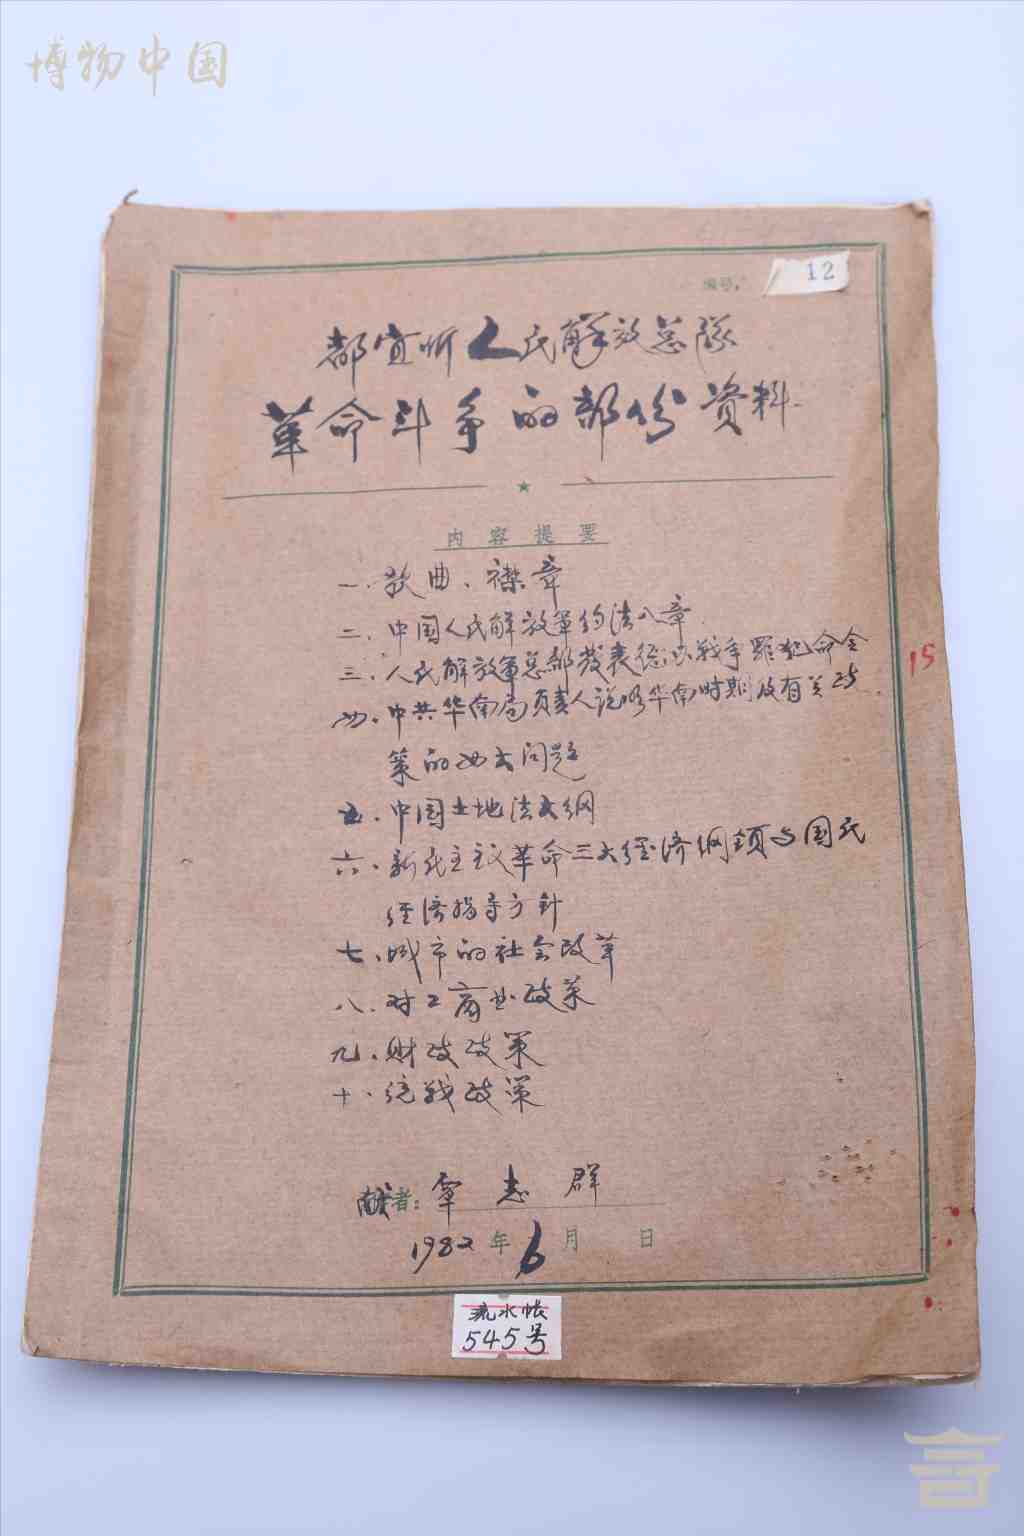 博物中国
编号:
12
都宜忻人民解放总隊
革命斗争的部份资料
内容提要
一.歌曲、襟章
二.中国人民解放軍约法八章
三.人民解放軍总部發表惩办战争罪犯命令
四.中共华南局負責人说明华南时期及有关政
策的四大问题
五.中国土地法大纲
六.新民主主义革命三大经济纲領与国民
经济指导方針
七.城市的社会改革
八.对工商业政策
九.财政政策
十.统战政策
献者:覃志群
1982年6月 日
流水帐
545号
15